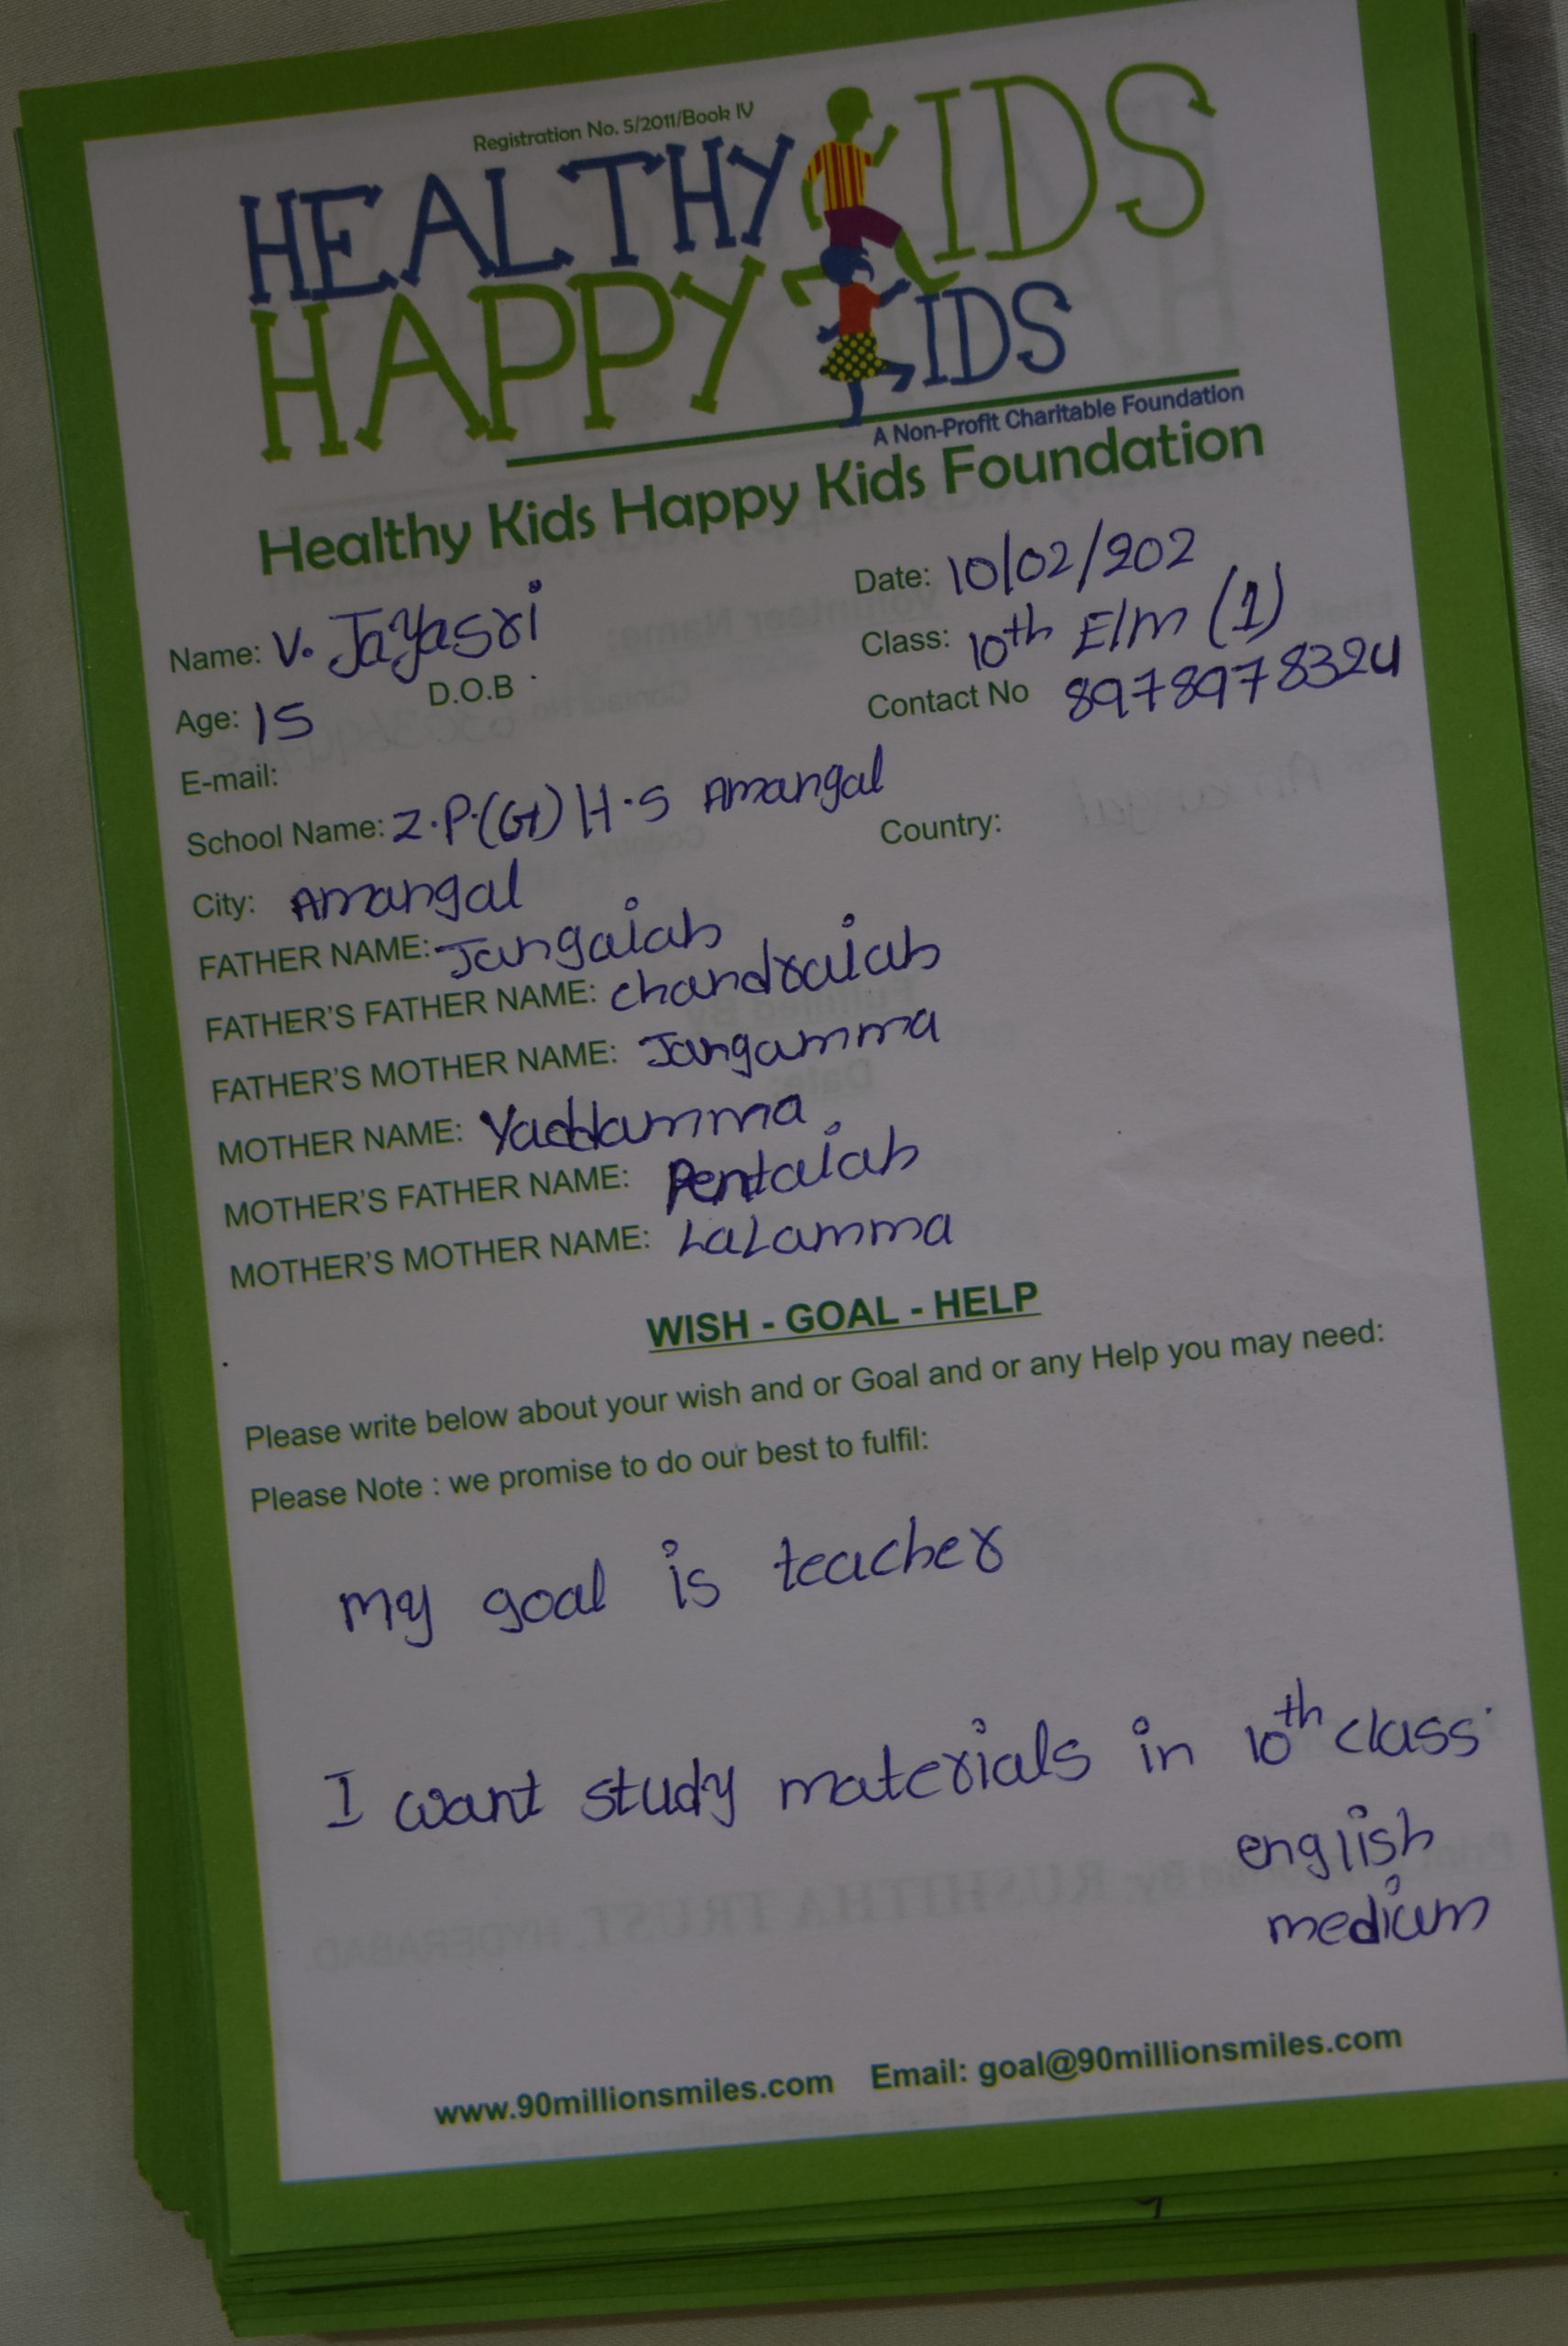 Registration No. 5/2011/Book IV
HEALTHY KIDS
HAPPY KIDS
A Non-Profit Charitable Foundation
Healthy Kids Happy Kids Foundation
Date: 10/02/202
Name: V. JaYasri
Class: 10th E/m (1)
Age: 15 D.O.B
Contact No 8978978324
E-mail:
School Name: Z.P.(G) H.S Amangal
Country:
City: Amangal
FATHER NAME: Jangaiah
FATHER'S FATHER NAME: chandraiah
FATHER'S MOTHER NAME: Jangamma
MOTHER NAME: Yaddamma
MOTHER'S FATHER NAME: Pentaiah
MOTHER'S MOTHER NAME: LaLamma
WISH - GOAL - HELP
Please write below about your wish and or Goal and or any Help you may need:
Please Note : we promise to do our best to fulfil:
my goal is teacher
I want study materials in 10th class.
english
medium
www.90millionsmiles.com Email: goal@90millionsmiles.com